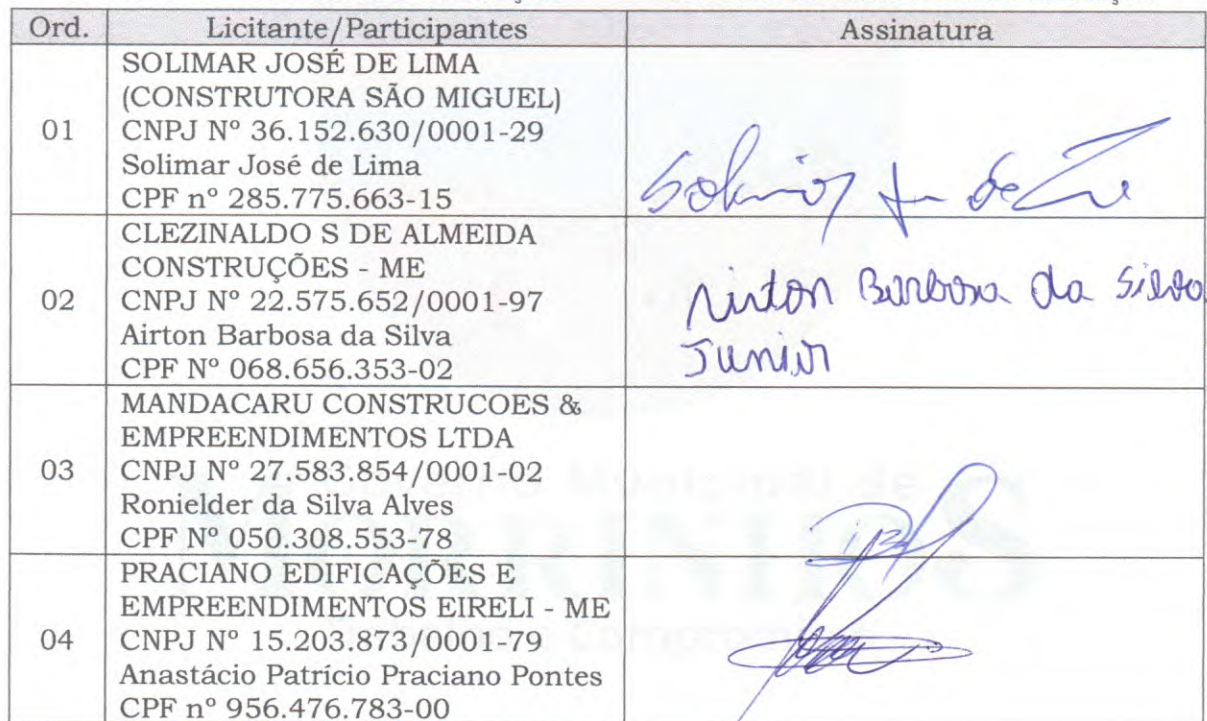 Ord. Licitante/Participantes Assinatura
SOLIMAR JOSÉ DE LIMA
(CONSTRUTORA SÃO MIGUEL)
01 CNPJ Nº 36.152.630/0001-29
Solimar José de Lima
CPF nº 285.775.663-15
CLEZINALDO S DE ALMEIDA
CONSTRUÇÕES - ME
02 CNPJ Nº 22.575.652/0001-97
Airton Barbosa da Silva
CPF Nº 068.656.353-02
Airton Barbosa da Silva
Junior
MANDACARU CONSTRUCOES &
EMPREENDIMENTOS LTDA
03 CNPJ Nº 27.583.854/0001-02
Ronielder da Silva Alves
CPF Nº 050.308.553-78
PRACIANO EDIFICAÇÕES E
EMPREENDIMENTOS EIRELI - ME
04 CNPJ Nº 15.203.873/0001-79
Anastácio Patrício Praciano Pontes
CPF nº 956.476.783-00